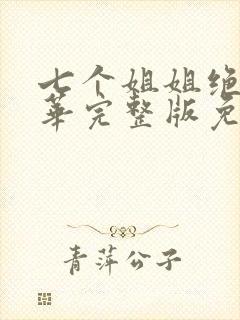 七个姐姐绝
華完整版免
青萍公子